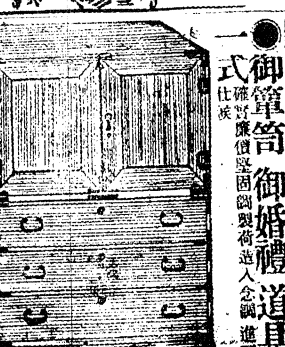 ●御簞笥 御婚禮 道具
一式確實廉價堅固調製荷造入念調進
仕候